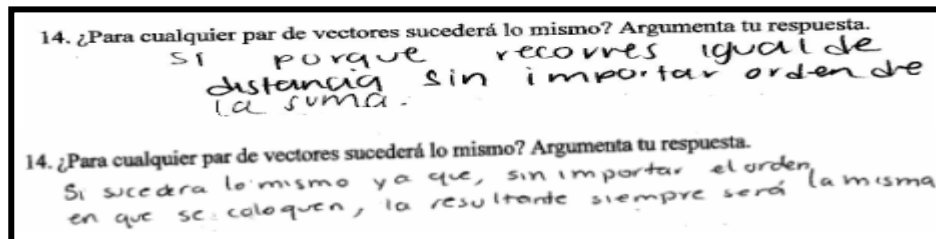 14. ¿Para cualquier par de vectores sucederá lo mismo? Argumenta tu respuesta.
Si porque recorres igual de
distancia sin importar orden de
la suma.
14. ¿Para cualquier par de vectores sucederá lo mismo? Argumenta tu respuesta.
Si sucedera lo mismo ya que, sin importar el orden
en que se coloquen, la resultante siempre será la misma